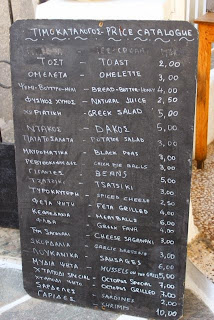 ΤΙΜΟΚΑΤΑΛΟΓΟΣ - PRICE CATALOGUE
ΤΟΣΤ - TOAST 2,00
ΟΜΕΛΕΤΑ - OMELETTE 3,00
- BREAD-BUTTER-HONEY 4,00
ΦΥΣΙΚΟΣ ΧΥΜΟΣ - NATURAL JUICE 2,50
- GREEK SALAD 5,00
ΝΤΑΚΟΣ - DAKOS 5,00
ΠΑΤΑΤΟΣΑΛΑΤΑ - POTATOE SALAD 3,00
ΜΑΥΡΟΜΑΤΙΚΑ - BLACK PEAS 3,00
ΡΕΒΥΘΟΚΕΦΤΕΔΕΣ - CHICK PIE BALLS 3,00
ΓΙΓΑΝΤΕΣ - BEANS 5,00
ΤΖΑΤΖΙΚΙ - TSATSIKI 3,00
ΤΥΡΟΚΑΥΤΕΡΗ - SPICED CHEESE
ΦΕΤΑ ΨΗΤΗ - FETA GRILLED 4,00
ΚΕΦΤΕΔΑΚΙΑ - MEATBALLS 6,00
ΦΑΒΑ - GREEK FAVA 4,00
- CHEESE SAGANAKI 3,00
ΣΚΟΡΔΑΛΙΑ
ΛΟΥΚΑΝΙΚΑ - SAUSAGES 6,00
ΜΥΔΙΑ ΨΗΤΑ - MUSSELS ON THE GRILL 5,00
ΧΤΑΠΟΔΙ SPECIAL - OCTOPUS SPECIAL 7,00
ΧΤΑΠΟΔΙ ΨΗΤΟ - OCTOPUS GRILLED 7,00
ΣΑΡΔΕΛΕΣ - SARDINES
ΓΑΡΙΔΕΣ - SHRIMPS 10,00